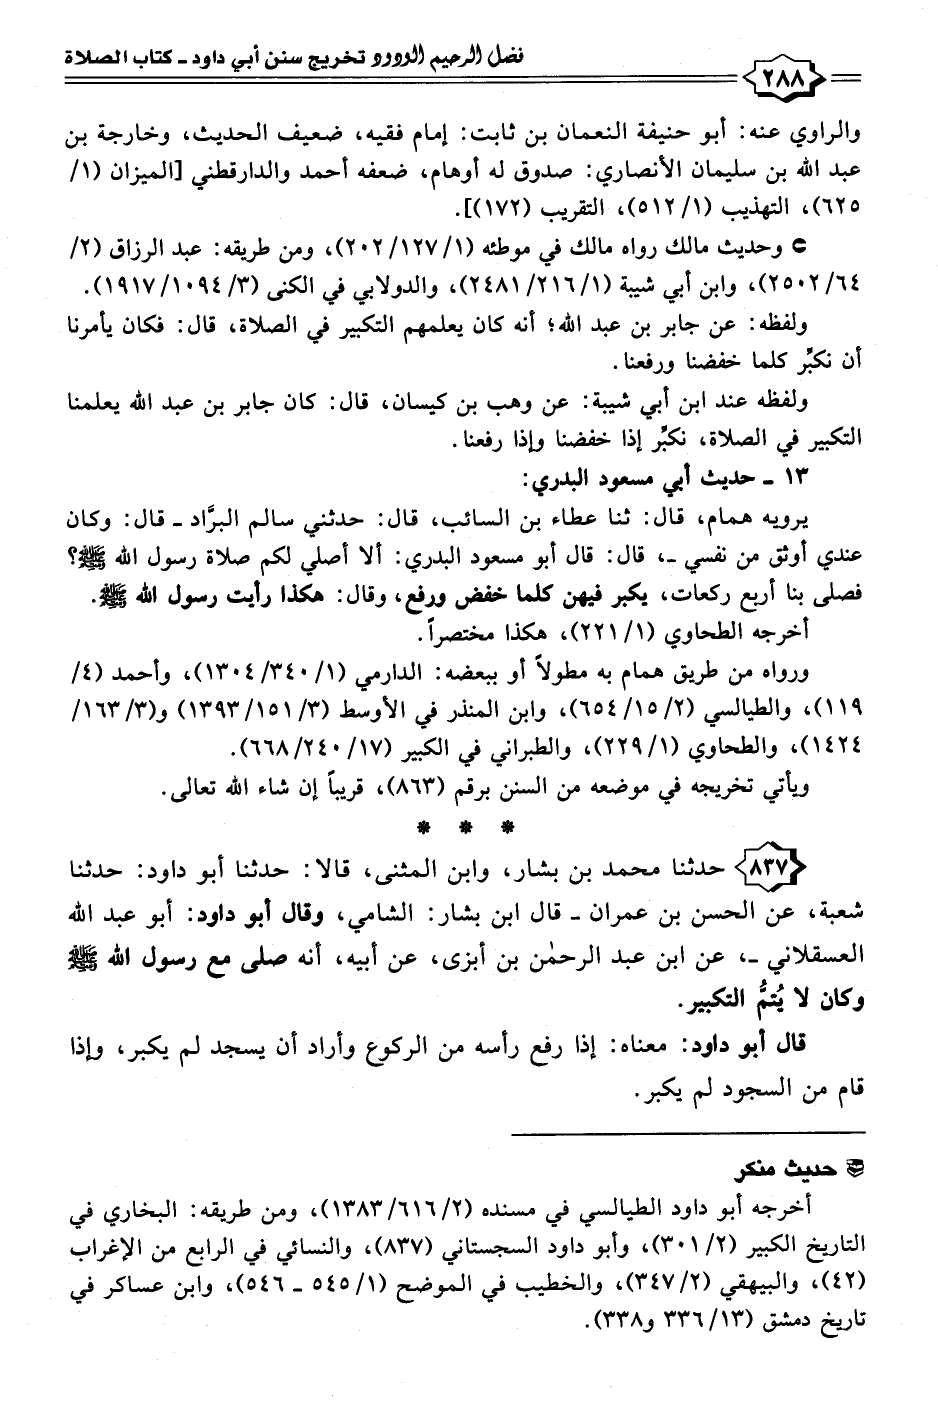 فضل الرحيم الودود تخريج سنن أبي داود ـ كتاب الصلاة
٢٨٨
والراوي عنه: أبو حنيفة النعمان بن ثابت: إمام فقيه، ضعيف الحديث، وخارجة بن
عبد الله بن سليمان الأنصاري: صدوق له أوهام، ضعفه أحمد والدارقطني [الميزان (١/
٦٢٥)، التهذيب (١/ ٥١٢)، التقريب (١٧٢)].
وحديث مالك رواه مالك في موطئه (١/ ١٢٧/ ٢٠٢)، ومن طريقه: عبد الرزاق (٢/
٦٤/ ٢٥٠٢)، وابن أبي شيبة (١/ ٢١٦/ ٢٤٨١)، والدولابي في الكنى (٣/ ١٠٩٤/ ١٩١٧).
ولفظه: عن جابر بن عبد الله؛ أنه كان يعلمهم التكبير في الصلاة، قال: فكان يأمرنا
أن نكبِّر كلما خفضنا ورفعنا.
ولفظه عند ابن أبي شيبة: عن وهب بن كيسان، قال: كان جابر بن عبد الله يعلمنا
التكبير في الصلاة، نكبِّر إذا خفضنا وإذا رفعنا.
١٣ ـ حديث أبي مسعود البدري:
يرويه همام، قال: ثنا عطاء بن السائب، قال: حدثني سالم البرَّاد ـ قال: وكان
عندي أوثق من نفسي ـ، قال: قال أبو مسعود البدري: ألا أصلي لكم صلاة رسول الله ﷺ؟
فصلى بنا أربع ركعات، يكبر فيهن كلما خفض ورفع، وقال: هكذا رأيت رسول الله ﷺ.
أخرجه الطحاوي (١/ ٢٢١)، هكذا مختصراً.
ورواه من طريق همام به مطولاً أو ببعضه: الدارمي (١/ ٣٤٠/ ١٣٠٤)، وأحمد (٤/
١١٩)، والطيالسي (٢/ ١٥/ ٦٥٤)، وابن المنذر في الأوسط (٣/ ١٥١/ ١٣٩٣) و(٣/ ١٦٣/
١٤٢٤)، والطحاوي (١/ ٢٢٩)، والطبراني في الكبير (١٧/ ٢٤٠/ ٦٦٨).
ويأتي تخريجه في موضعه من السنن برقم (٨٦٣)، قريباً إن شاء الله تعالى.
* * *
٨٣٧ حدثنا محمد بن بشار، وابن المثنى، قالا: حدثنا أبو داود: حدثنا
شعبة، عن الحسن بن عمران ـ قال ابن بشار: الشامي، وقال أبو داود: أبو عبد الله
العسقلاني ـ، عن ابن عبد الرحمٰن بن أبزى، عن أبيه، أنه صلى مع رسول الله ﷺ
وكان لا يُتمُّ التكبير.
قال أبو داود: معناه: إذا رفع رأسه من الركوع وأراد أن يسجد لم يكبر، وإذا
قام من السجود لم يكبر.
حديث منكر
أخرجه أبو داود الطيالسي في مسنده (٢/ ٦١٦/ ١٣٨٣)، ومن طريقه: البخاري في
التاريخ الكبير (٢/ ٣٠١)، وأبو داود السجستاني (٨٣٧)، والنسائي في الرابع من الإغراب
(٤٢)، والبيهقي (٢/ ٣٤٧)، والخطيب في الموضح (١/ ٥٤٥ ـ ٥٤٦)، وابن عساكر في
تاريخ دمشق (١٣/ ٣٣٦ و٣٣٨).